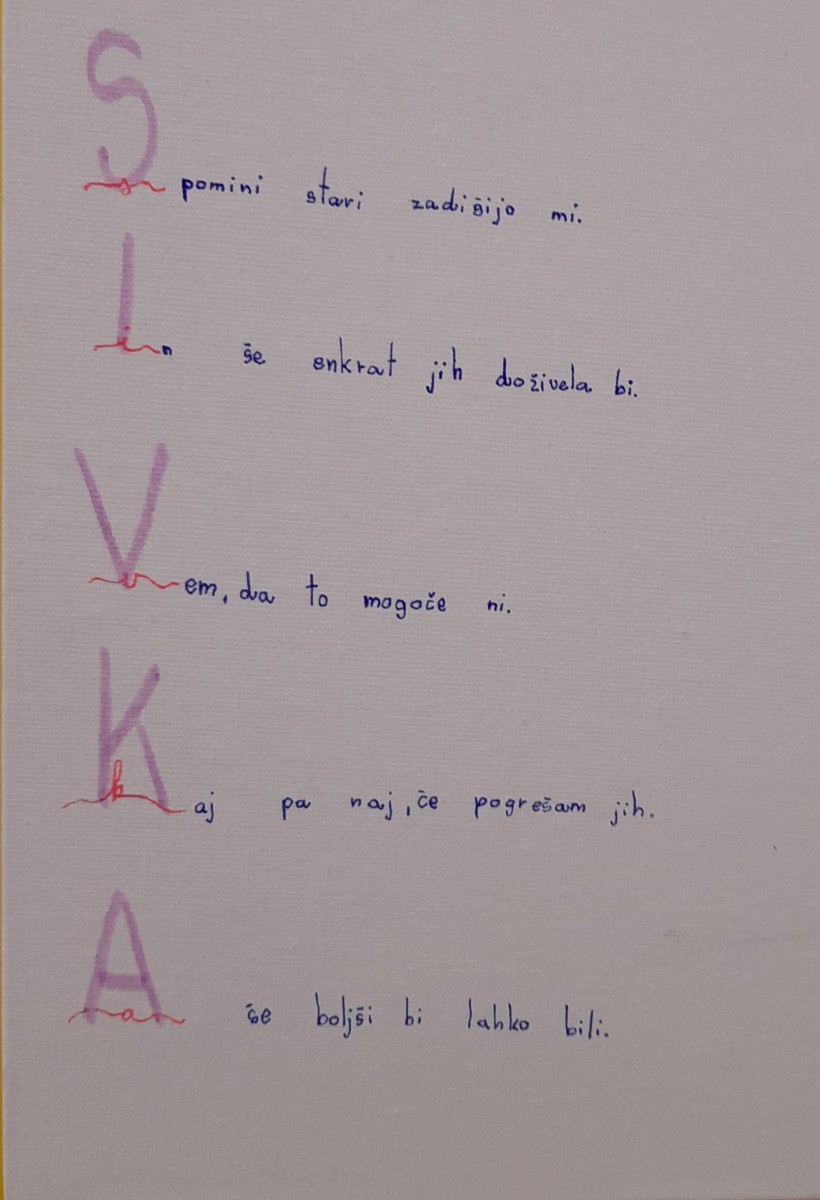 Spomini stari zadišijo mi.
In še enkrat jih doživela bi.
Vem, da to mogoče ni.
Kaj pa naj, če pogrešam jih.
A še boljši bi lahko bili.